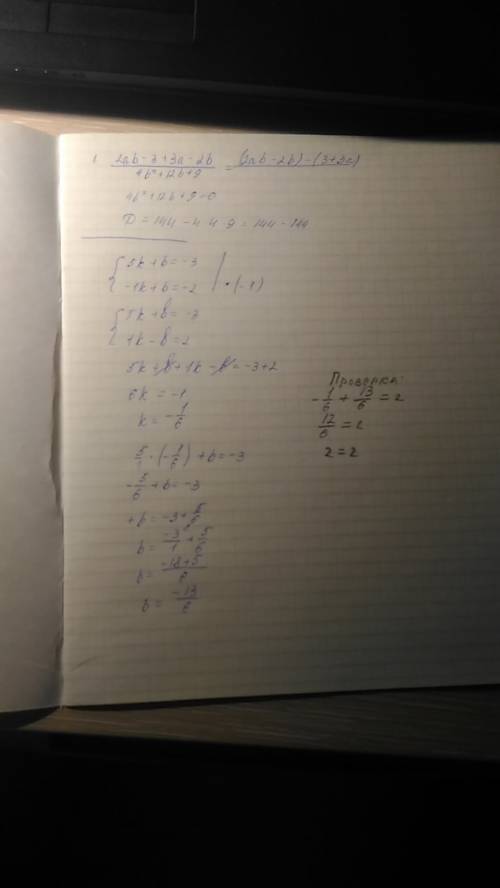 1. (2ab-3+3a-2b)/(4b²+12b+9) = (2ab-2b)-(3+3a)
4b²+12b+9=0
D=144-4·4·9=144-144
{5k+b=-3
{-1k+b=-2 | ·(-1)
{5k+b=-3
{1k-b=2
5k+b+1k-b=-3+2
6k=-1
k=-1/6
5/1·(-1/6)+b=-3
-5/6+b=-3
+b=-3+5/6
b=-3/1+5/6
b=(-18+5)/6
b=-13/6
Проверка:
-1/6+13/6=2
12/6=2
2=2